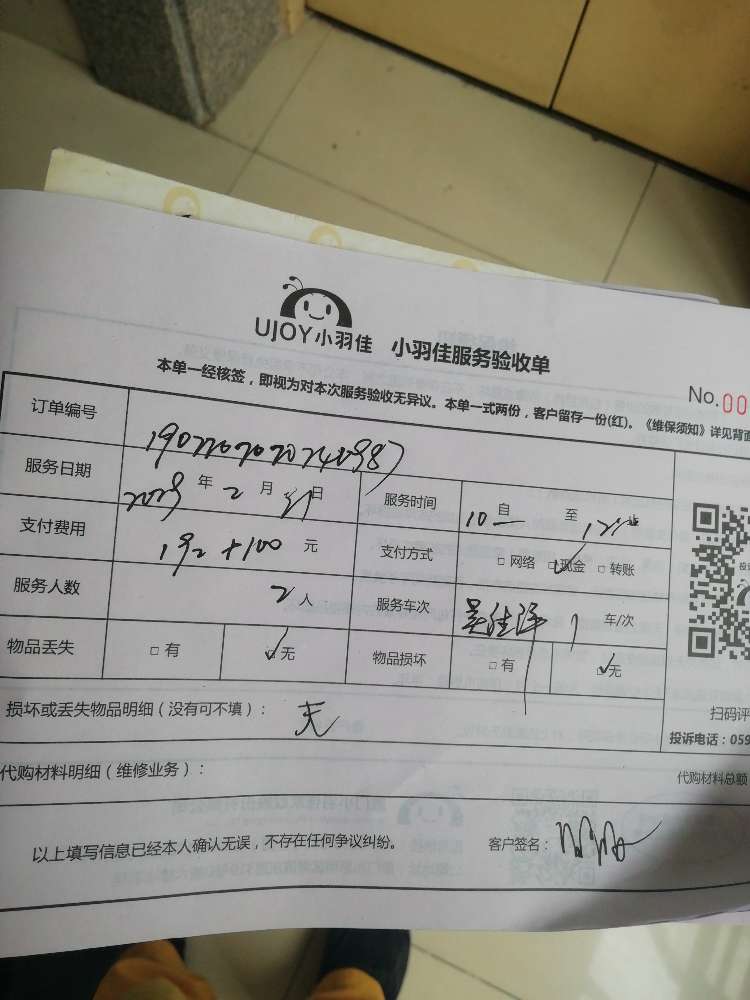 UJOY小羽佳 小羽佳服务验收单
本单一经核签，即视为对本次服务验收无异议。本单一式两份，客户留存一份(红)。《维保须知》详见背面
No.00
订单编号
服务日期 年 2 月 日 服务时间 10 自 至
支付费用 192+100 元 支付方式 □网络 ☑现金 □转账
服务人数 2 人 服务车次 1 车/次
物品丢失 □有 ☑无 物品损坏 □有 ☑无
扫码评
损坏或丢失物品明细（没有可不填）： 无
投诉电话：059
代购材料明细（维修业务）： 代购材料总额
以上填写信息已经本人确认无误，不存在任何争议纠纷。 客户签名：